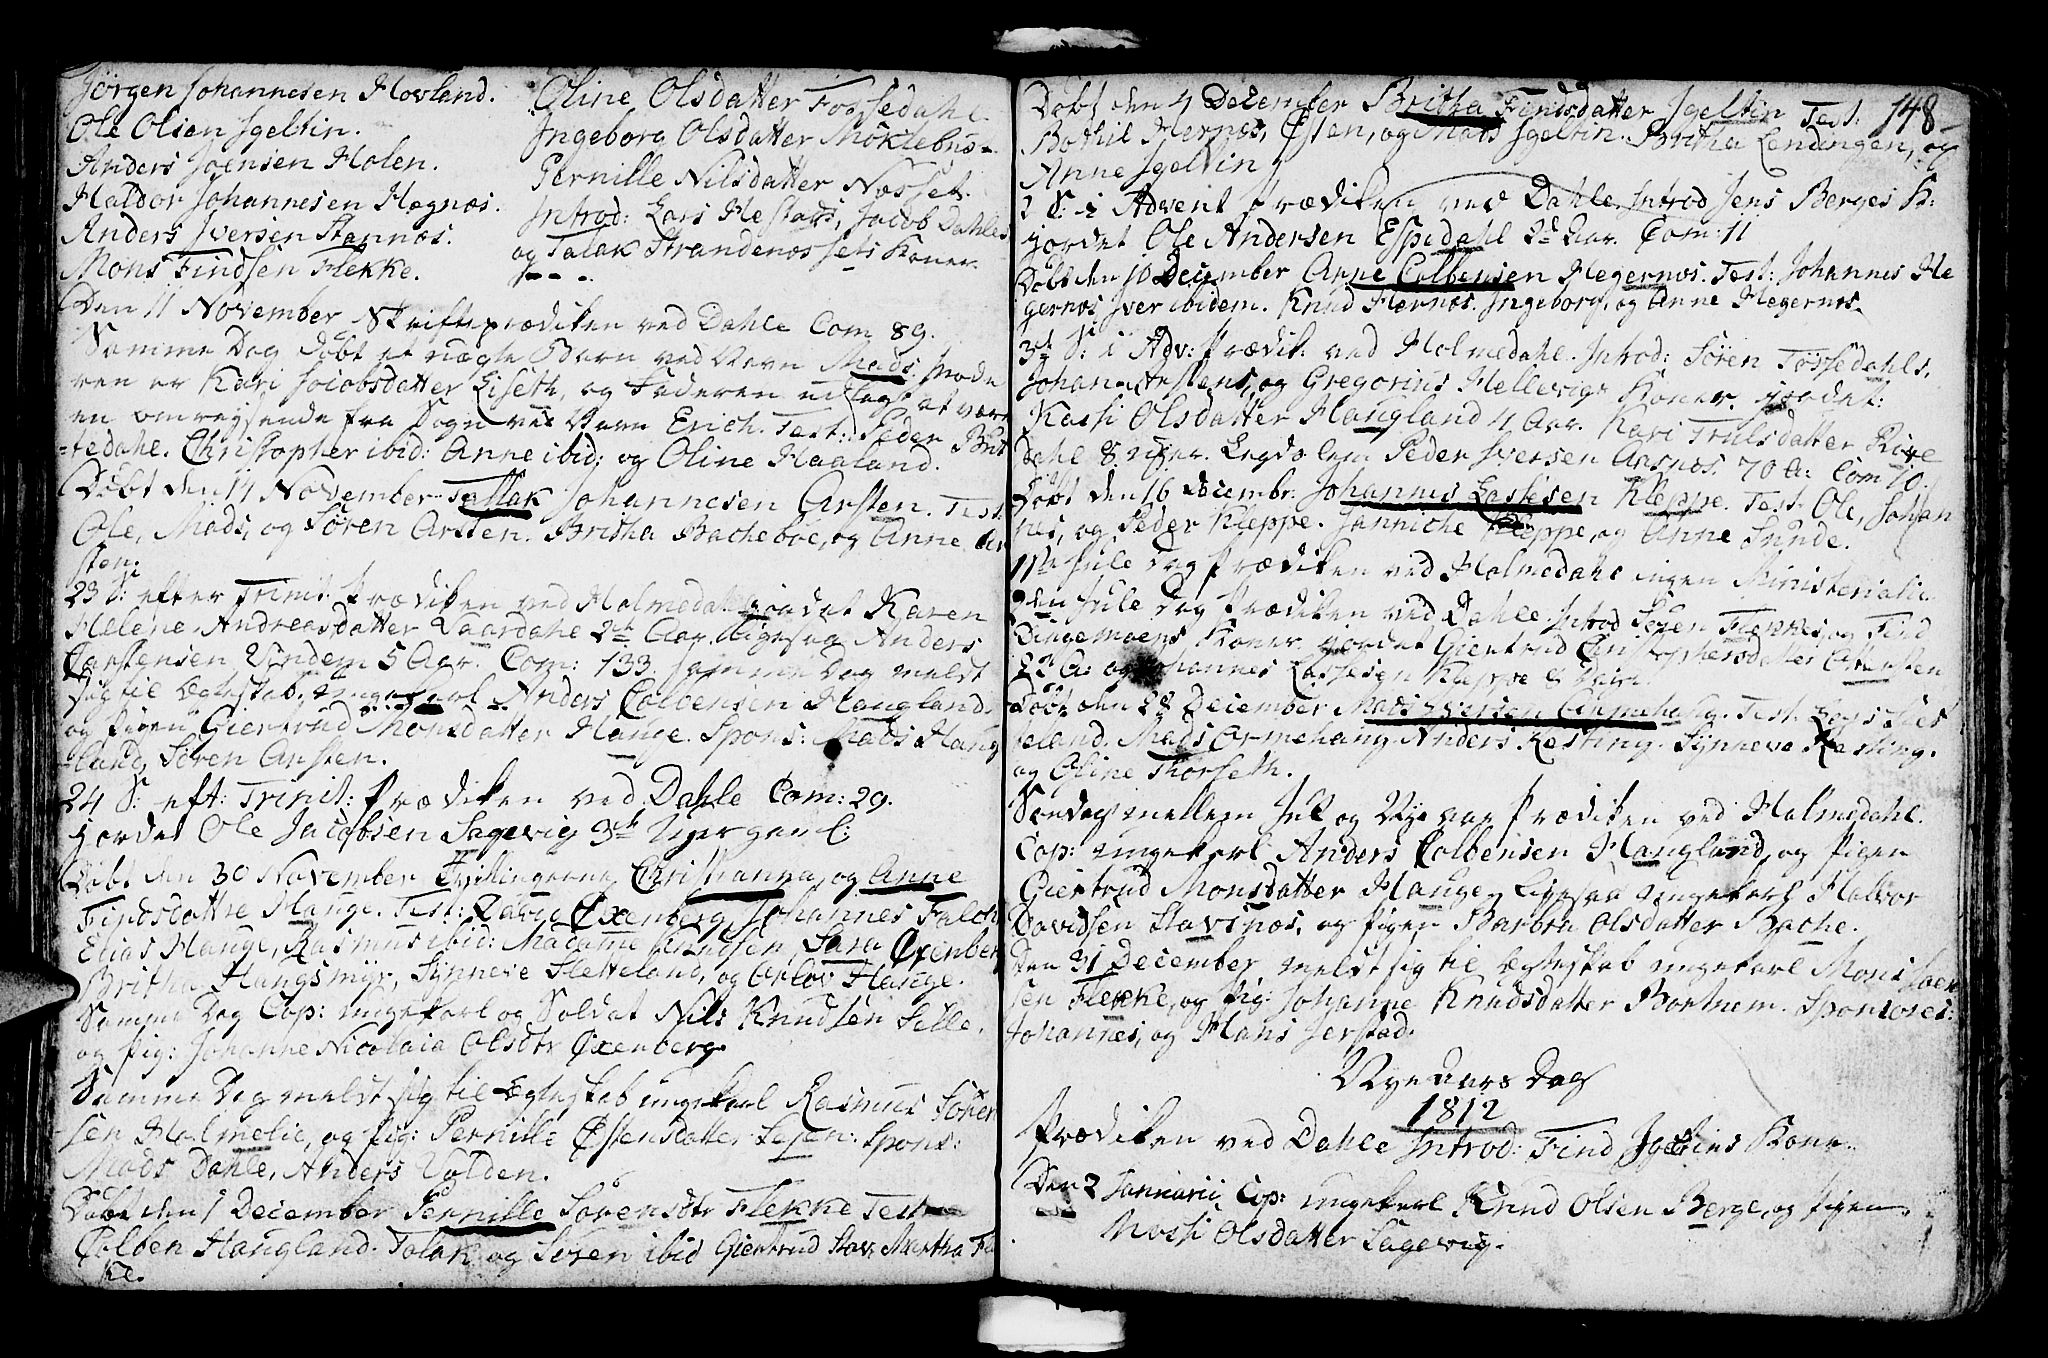 Jörgen Johannesen Hovland.
Ole Olsen Igeltin.
Anders Joensen Holen.
Haldor Johannesen Hegnæs.
Anders Iversen Stannæs.
Mons Findsen Flekke.
Oline Olsdatter Tossedahl
Ingeborg Olsdatter Möklebust
Pernille Nilsdatter Nosset.
Introd: Lars Hestads, Jacob Dahles
og Talak Strandenossets Koner.
Den 11 November Skrifteprædiken ved Dahle Com 89.
Samme Dag döbt et uægte Barn ved Navn Mads, Mode
ren er Kari Jacobsdatter Liseth, og Faderen udlagt at være
en omreysende fra Sogn ved Navn Erich. Test: Peder Birt
tedahl. Christopher ibid: Anne ibid: og Oline Haaland.
Döbt den 14 November Tallak Johannesen Arsten. Test.
Ole, Mads, og Sören Arsten. Britha Bacheböe, og Anne Ar
sten.
23 S: efter Trinit. Prædiken ved Holmedahl jordet Karen
Helene Andreasdatter Laardahl 2de Aar. ligesaa Anders
Carstensen Vindem 5 Aar. Com: 133. samme Dag meldt
sig til Ægteskab ungekarl Anders Colbensen Haugland
og Pigen Giertrud Monsdatter Hauge. Spons: Mads Haug
land, Sören Arsten.
24 S: eft: Trinit: Prædiken ved Dahle Com: 29.
jordet Ole Jacobsen Sagevig 3de Uger gaml:
Döbt den 30 November Tvillingerne Christianna, og Anne
Findsdattre Hauge. Test: Øxenberg, Johannes Falch
Elias Hauge, Rasmus ibid: Madame Knudsen, Sara Øxenberg
Britha Haugsmyr, Synneve Sletteland, og Hauge.
Samme Dag Cop: ungekarl og Soldat Nils Knudsen Selle,
og Pig: Johanne Nicolaia Olsdtr Øxenberg.
Samme Dag meldt sig til Ægteskab ungekarl Rasmus Sören
sen Holmelie, og Pig: Pernille Østensdatter Spons:
Mads Dahle, Anders Volden.
Döbt den 1 December Pernille Sörensdtr Flekke Test
Colben Haugland. Talak og Sören ibid Giertrud Martha Fle
ke.
148
Döbt den 4 December Britha Findsdatter Igeltin Test:
Bothil Hernæs, Østen, og Mads Igeltin. Britha Lendingen, og
Anne Igeltin
2 S: i Advent Prædiken ved Dahle Introd Jens Berges K:
jordet Ole Andersen Espedahl 2de Aar. Com: 11
Döbt den 10 December Anne Colbensen Hegernæs. Test: Johannes He
gernæs Iver ibidem. Knud Hernæs. Ingeborg, og Anne Hegernæs.
3de S: i Adv: Prædik: ved Holmedahl. Introd: Sören Tossedahls,
Johan Arstens, og Gregorius Hellevigs Koner. jordet:
Kasti Olsdatter Haugland 4 Aar. Kari Trulsdatter Rise
dahl 8 Uger. Legdslem Peder Iversen Aasnæs 70 A: Com 70.
Döbt den 16 decembr: Johannes Lassesen Kleppe. Test Ole, Johan
nes, og Peder Kleppe. Janniche Kleppe, og Anne Sunde.
1ste Jule Dag Prædiken ved Holmedahl ingen Ministerialie
2den Jule Dag Prædiken ved Dahle Introd Sören Flekkes, og Find
Dingemoens Koner jordet Giertrud Christophersdatter
2de A: og Johannes Lassesen Kleppe 8 Dage.
Döbt den 28 December Mads Iversen Ormehaug. Test. Lars Slet
teland. Mads Ormehaug Anders Kesting. Synneve Kesting.
og Oline Thorseth.
Söndag mellem Jul og Nye aar Prædiken ved Holmedahl.
Cop: ungekarl Anders Colbensen Haugland, og Pigen
Giertrud Monsdatter Hauge, ligesaa ungekarl Halvor
Davidsen Stavenæs, og Pigen Barbra Olsdatter Bache.
Den 31 December meldt sig til Ægteskab ungekarl Mons Joen
sen Flekke, og Pig: Johanne Knudsdatter Bortnem. Sponsores:
Johannes, og Hans Jerstad.
Nye Aars Dag
1812
Prædiken ved Dahle Introd: Find Igeltins Kone.
Den 2 Januarii Cop: ungekarl Knud Olsen Berge, og Pigen
Massi Olsdatter Sagevig.